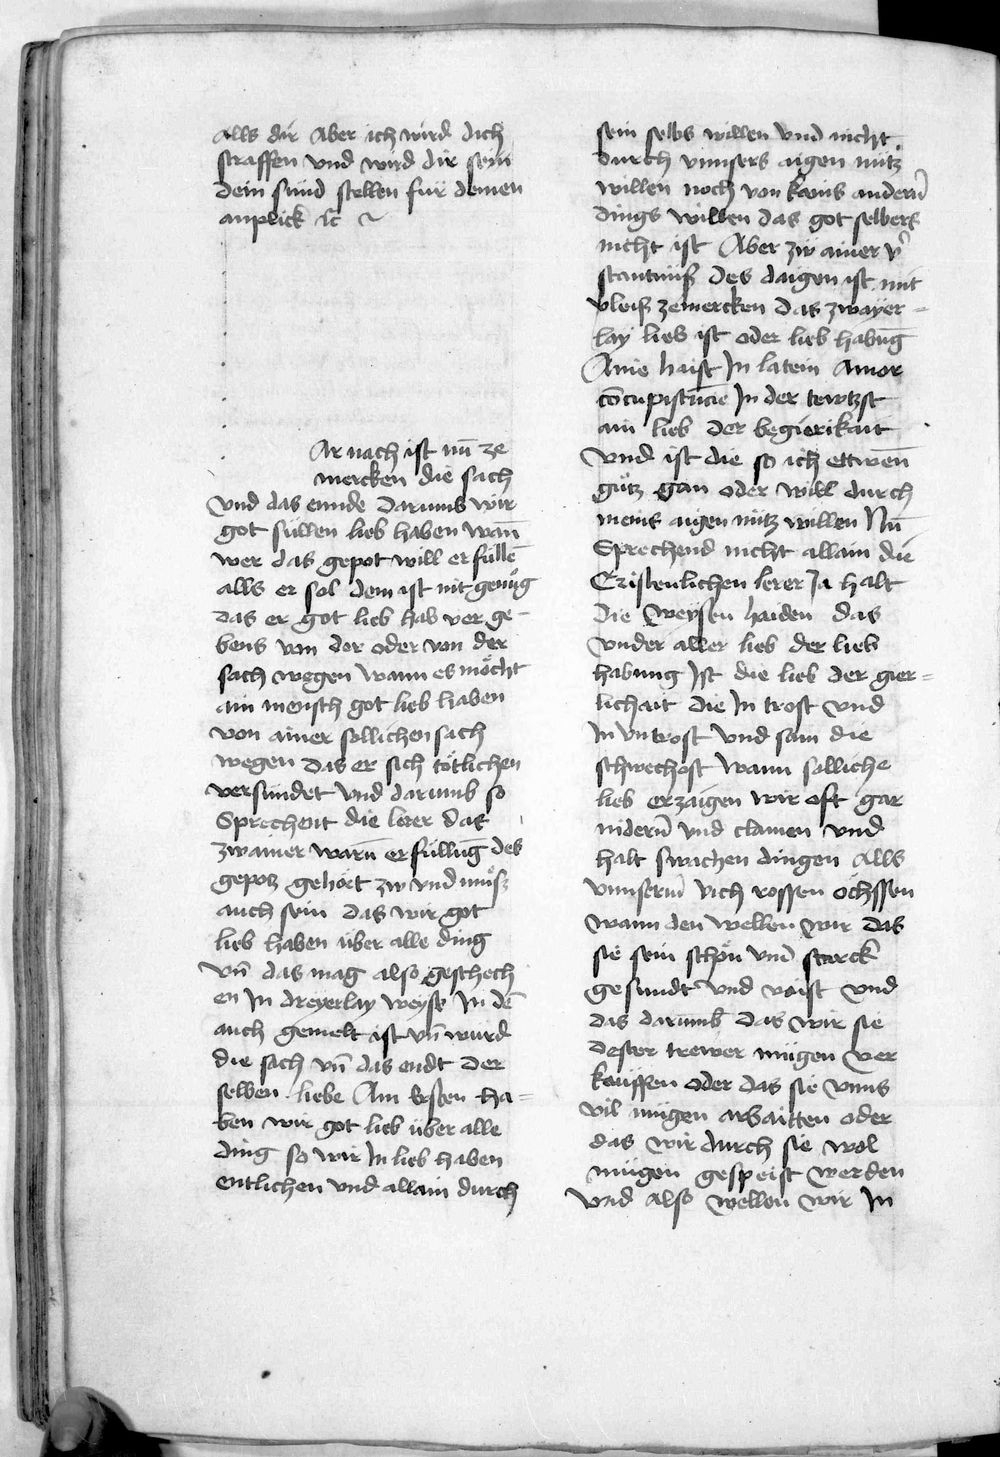 alls dir Aber ich wird dich
straffen vnd wird dir sein
dein sünd stellen für deinen
anplick
Ar nach ist nū ze
mercken die sach
vnd das ennde darumb wir
got süllen lieb haben wañ
wer das gepot will erfüllē
alls er sol dem ist nit genůg
das er got lieb hab ver ge-
bens von der oder von der
sach wegen wann es möcht
ain mensch got lieb haben
von ainer sollichen sach
wegen das er sich tötlichen
versündet vnd darumb so
Sprechent die lerer das
zwainer warñ erfüllūg des
gepotz gehört zw vnd můsz
auch sein das wir got
lieb haben über alle ding
vñ das mag also geschech
en In dreyerlay weyse In dē
auch gemelt ist vñ würd
die sach vñ das endt der
selben liebe Am Ersten ha=
ben wir got lieb über alle
ding so wir In lieb haben
entlichen vnd allain durch
sein selbs willen vnd nicht
durch vnnsers aigen nütz
willen noch von kains andern̄
dings willen das got selbers
nicht ist Aber zw ainer v̄
stantnüß des daigen ist mit
vleiß ze mercken das zwayer=
lay lieb ist oder lieb habūg
Aine haist In latein Amor
cōcupistācie In der tewtzst
ain lieb der begierikait
Vnd ist die so ich ettwenn
gůtz gan oder will durch
meins aigen nütz willen Nū
Sprechend nicht allain die
Cristenlichen lerer Ja halt
die weysen haiden das
vnder aller lieb der lieb
habung Ist die lieb der gier=
lichait die In trost vnd
In vntrost vnd sam die
schwechost wann solliche
lieb erzaigen wir oft gar
nidern̄ vnd clainen vnd
halt swachen dingen Alls
vnnserm̄ vich rossen öchssen
wann den wellen wir das
sie sein schön vnd starck
gesundt vnd vaist vnd
das darumb das wir sie
dester trewer mügen ver
kauffen oder das sie vnns
vil mügen arbaitten oder
das wir durch sie wol
mügen gespeist werden
Vnd also wellen wir In